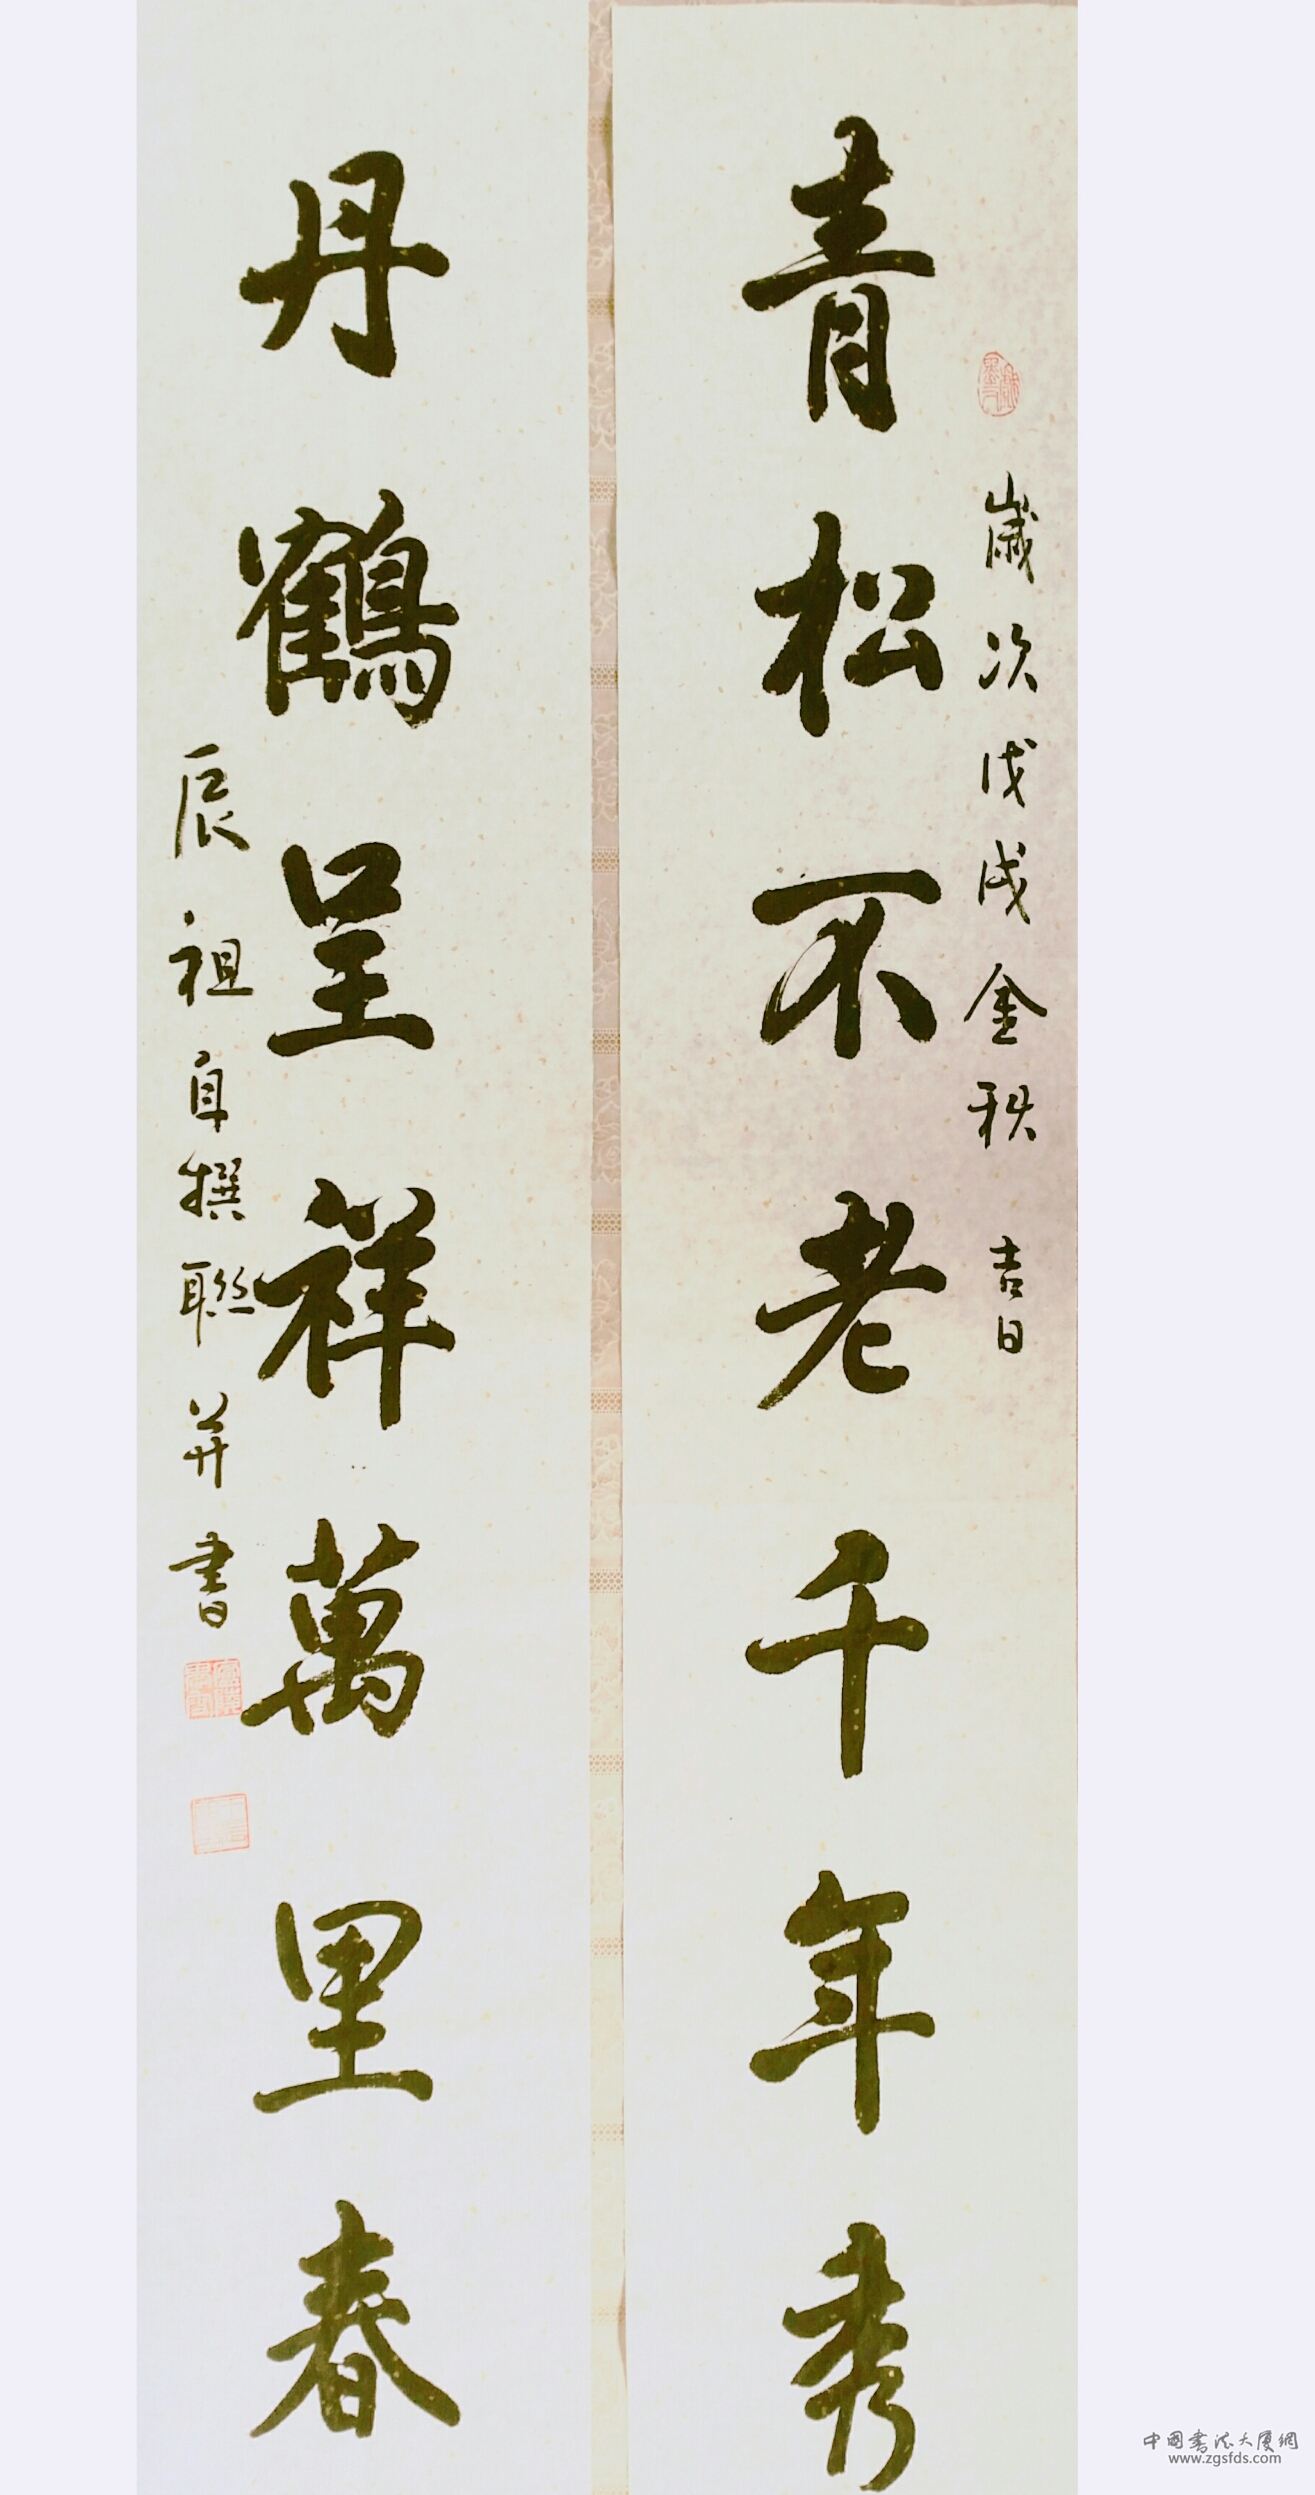 歲次戊戌金秋 吉日
青松不老千年秀
丹鶴呈祥萬里春
辰祖自撰聯并書
中国書法大厦網
www.zgsfds.com